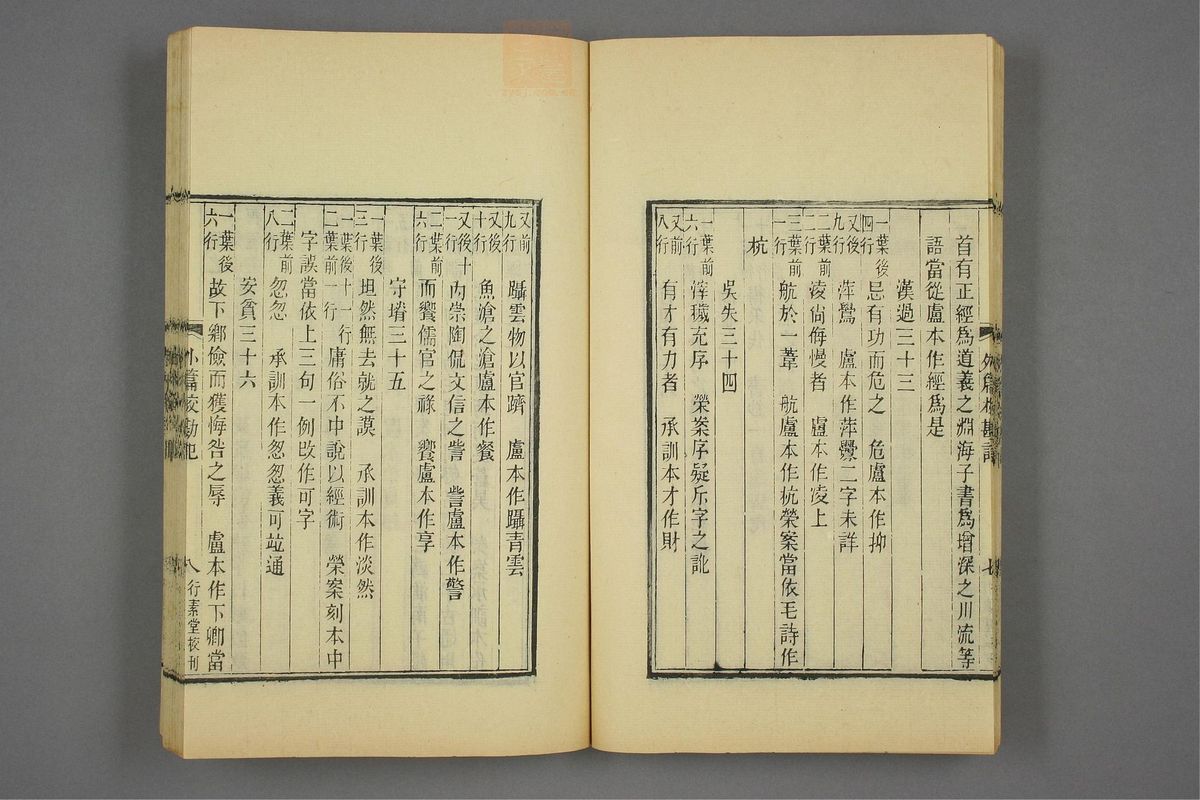 首有正經爲道義之淵海子書爲增深之川流等
語當從盧本作經爲是
漢過三十三
一葉後四行 忌有功而危之 危盧本作抑
又後九行 萍鷽 盧本作萍㶟二字未詳
二葉前二行 凌尚侮慢者 盧本作凌上
三葉前一行 航於一葦 航盧本作杭榮案當依毛詩作
杭
吳失三十四
一葉前六行 滓穢充序 榮案序疑斥字之訛
又前八行 有才有力者 承訓本才作財
又前九行 躡雲物以官躋 盧本作躡青雲
又後十行 魚滄之滄盧本作餐
又後十一行 內崇陶侃文信之訾 訾盧本作警
二葉前六行 而饗儒官之祿 饗盧本作享
守塉三十五
一葉後三行 坦然無去就之謨 承訓本作淡然
一葉後十一行二葉前一行 庸俗不中說以經術 榮案刻本中
字誤當依上三句一例改作可字
二葉前八行 忽忽 承訓本作忽忽義可竝通
安貧三十六
一葉後六行 故下鄉儉而獲悔咎之辱 盧本作下卿當
八 行素堂校刊